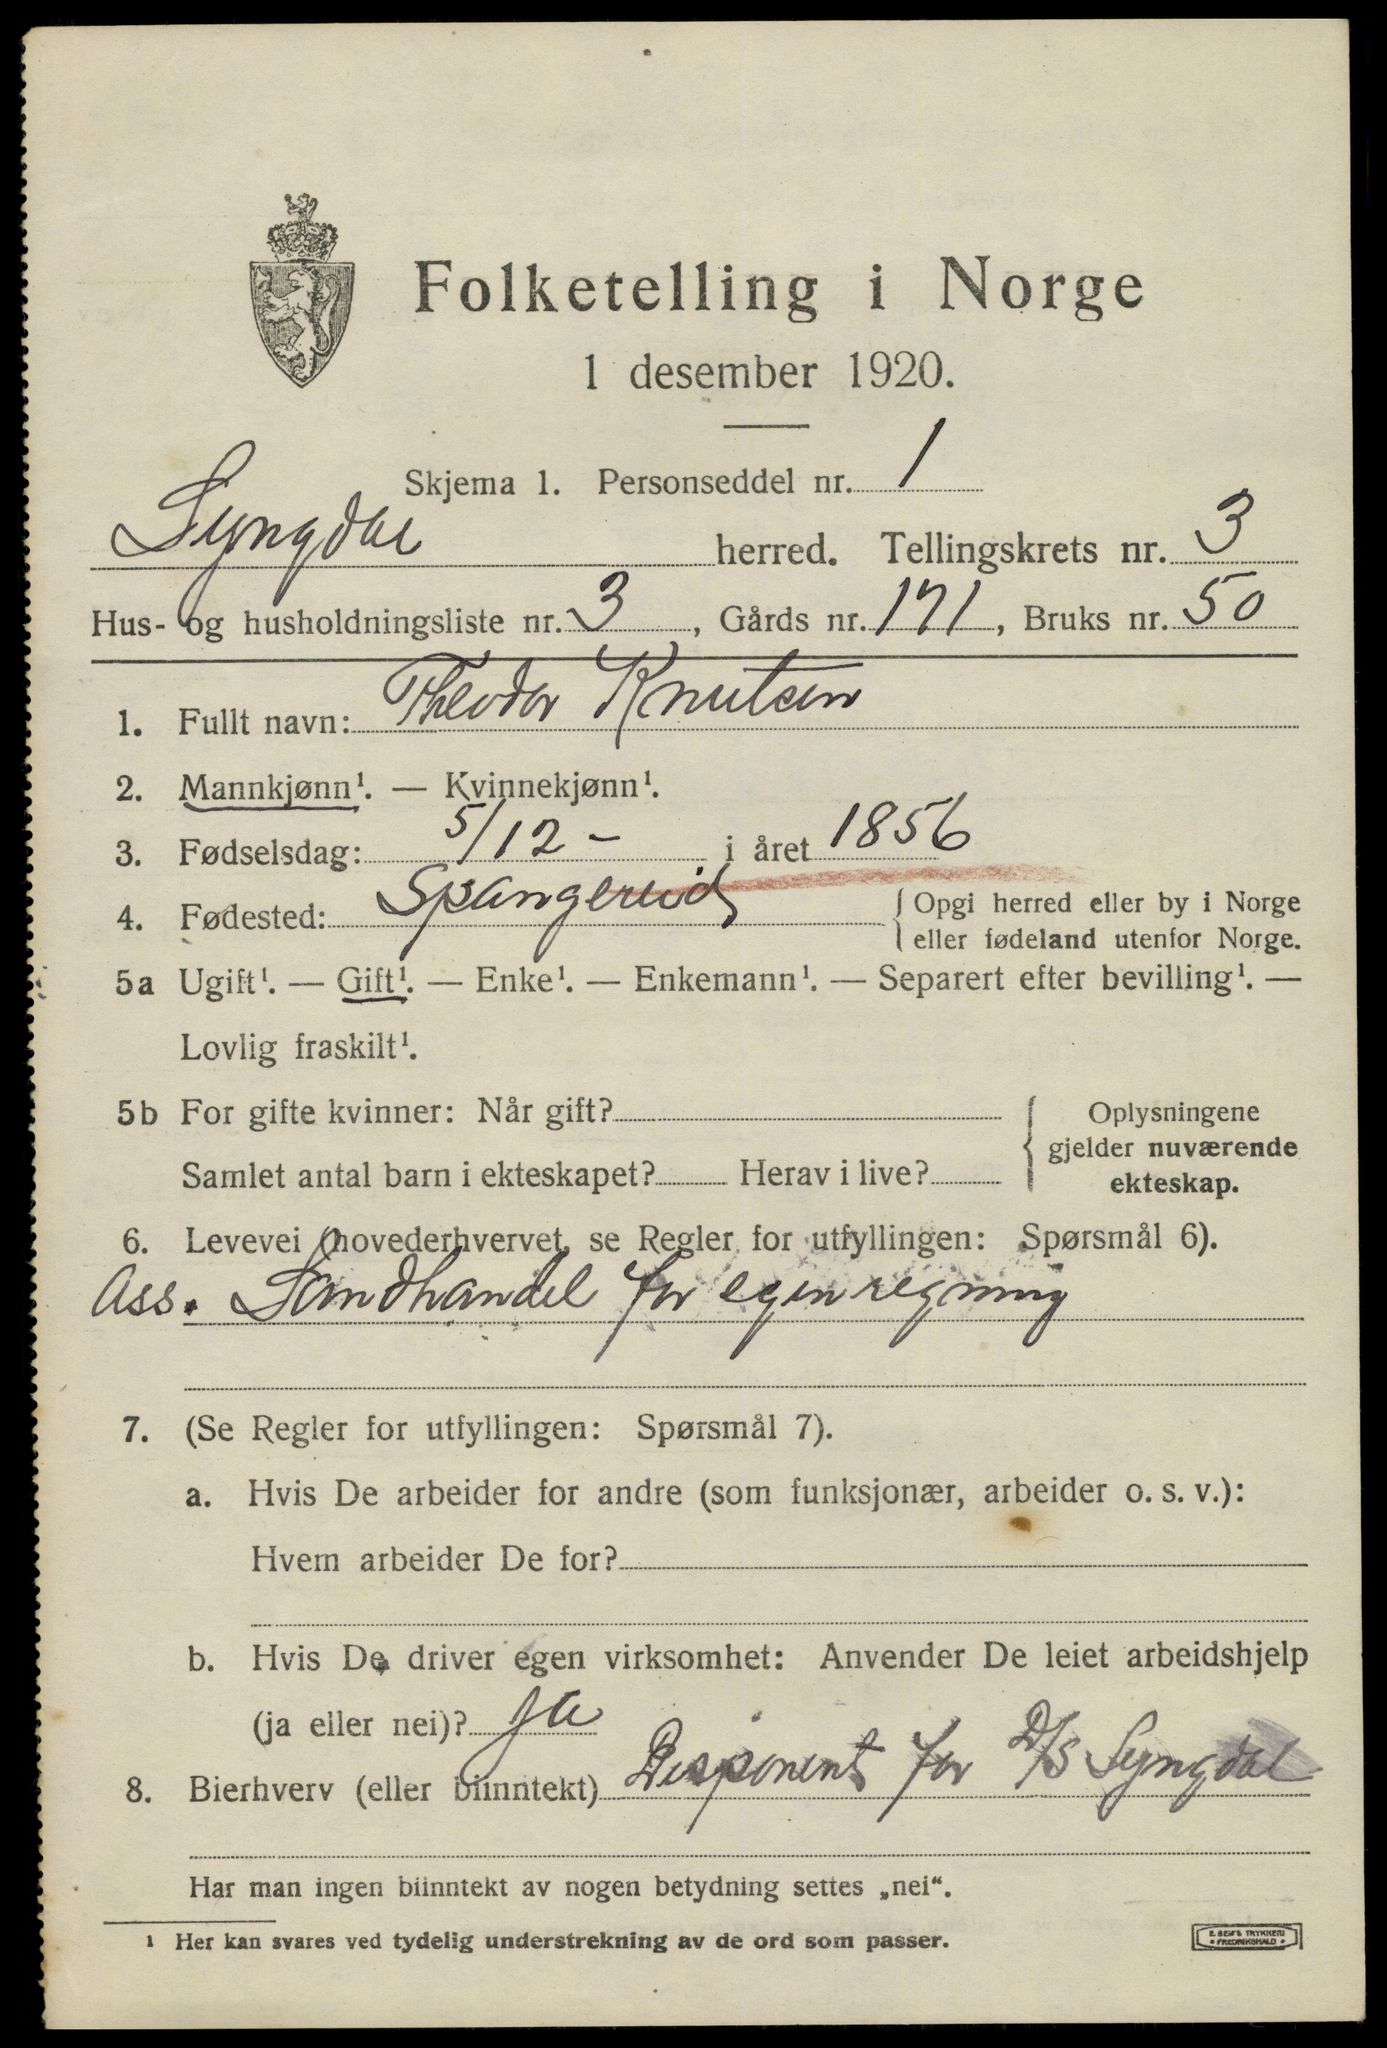 Folketelling i Norge
1 desember 1920.
Skjema 1. Personseddel nr. 1
Lyngdal herred. Tellingskrets nr. 3
Hus- og husholdningsliste nr. 3, Gårds nr. 171, Bruks nr. 50
1. Fullt navn: Theodor Knutsen
2. Mannkjønn¹. — Kvinnekjønn¹.
3. Fødselsdag: 5/12 - i året 1856
4. Fødested: Spangereid { Opgi herred eller by i Norge
eller fødeland utenfor Norge.
5a Ugift¹. — Gift¹. — Enke¹. — Enkemann¹. — Separert efter bevilling¹. —
Lovlig fraskilt¹.
5b For gifte kvinner: Når gift? { Oplysningene
gjelder nuværende
Samlet antal barn i ekteskapet? Herav i live? ekteskap.
6. Levevei (hovederhvervet, se Regler for utfyllingen: Spørsmål 6).
Ass. Landhandel for egen regning
7. (Se Regler for utfyllingen: Spørsmål 7).
a. Hvis De arbeider for andre (som funksjonær, arbeider o. s. v.):
Hvem arbeider De for?
b. Hvis De driver egen virksomhet: Anvender De leiet arbeidshjelp
(ja eller nei)? ja
8. Bierhverv (eller biinntekt) Disponent for D/S Lyngdal
Har man ingen biinntekt av nogen betydning settes „nei“.
¹ Her kan svares ved tydelig understrekning av de ord som passer.
E. SEM'S TRYKKERI
• FREDRIKSHALD •